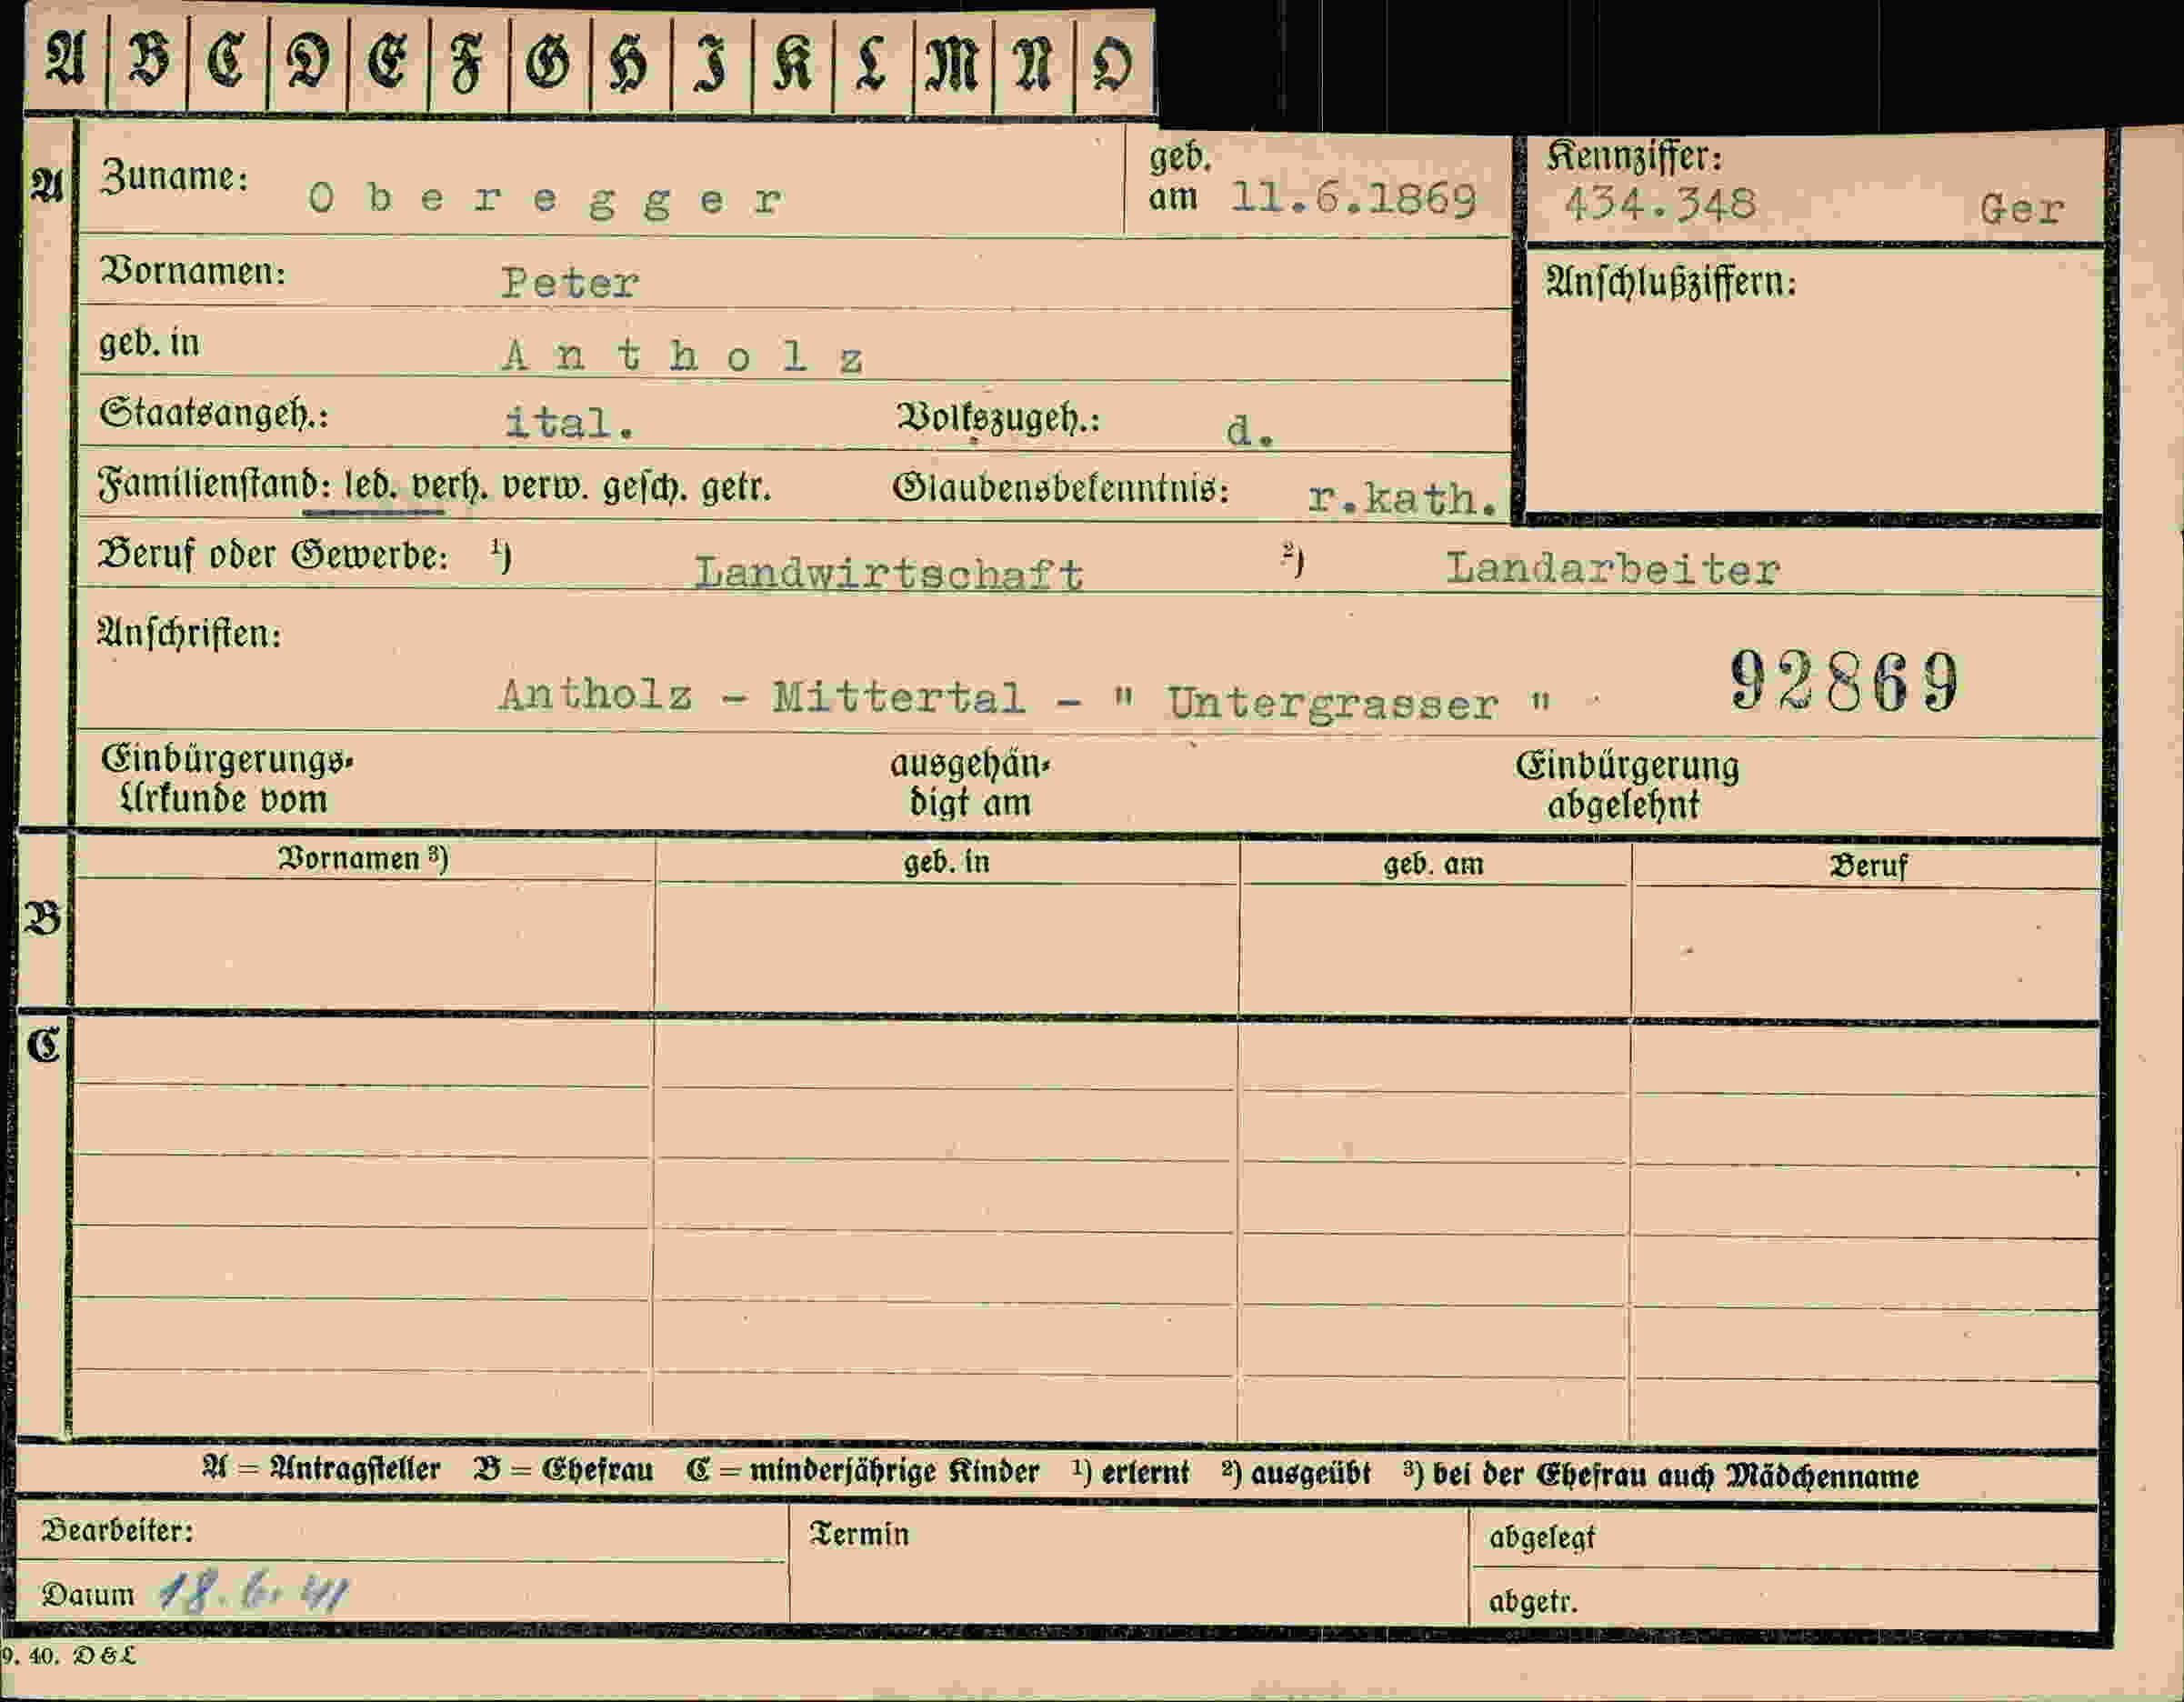 A B C D E F G H I K L M N O
A Zuname: Oberegger geb. am 11.6.1869 Kennziffer: 434.348 Ger
Vornamen: Peter Anschlußziffern:
geb. in Antholz
Staatsangeh.: ital. Volkszugeh.: d.
Familienstand: led. verh. verw. gesch. getr. Glaubensbekenntnis: r.kath.
Beruf oder Gewerbe: 1) Landwirtschaft 2) Landarbeiter
Anschriften:
Antholz - Mittertal - " Untergrasser " 92869
Einbürgerungs- ausgehän- Einbürgerung
Urkunde vom digt am abgelehnt
Vornamen 3) geb. in geb. am Beruf
B
C
A = Antragsteller B = Ehefrau C = minderjährige Kinder 1) erlernt 2) ausgeübt 3) bei der Ehefrau auch Mädchenname
Bearbeiter: Termin abgelegt
Datum 18.6.41 abgetr.
9. 40. D&L